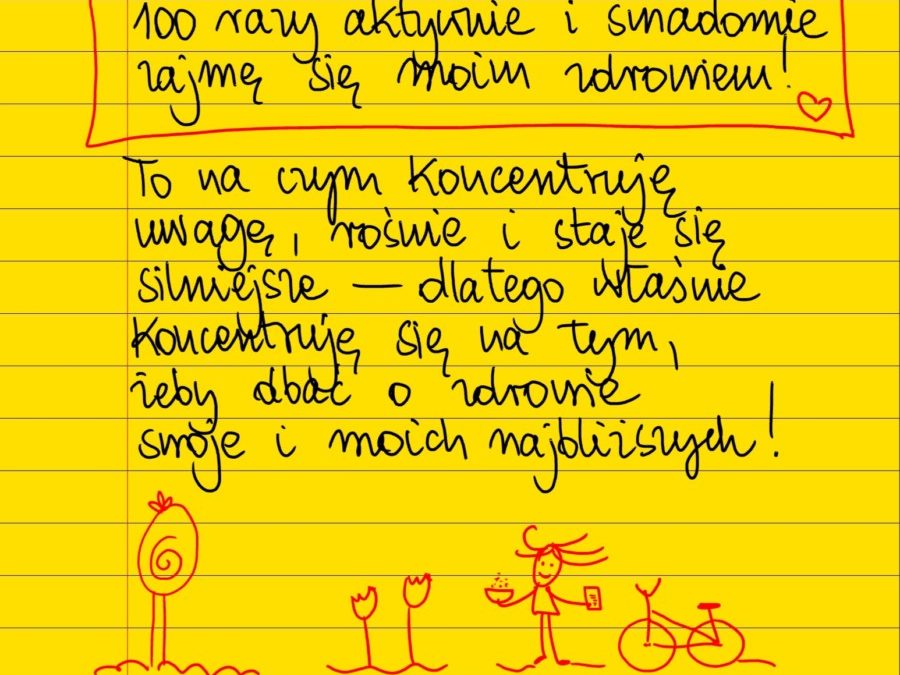 100 razy aktywnie i świadomie
zajmę się moim zdrowiem!
To na czym koncentruję
uwagę, rośnie i staje się
silniejsze — dlatego właśnie
koncentruję się na tym,
żeby dbać o zdrowie
swoje i moich najbliższych!